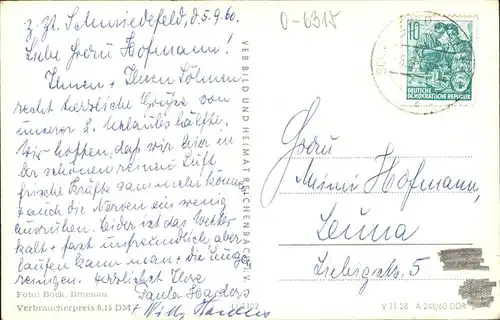 z. Zt. Schmiedefeld, d. 5.9.60.
Liebe Frau Hofmann!
Ihnen + Ihren Söhnen
recht herzliche Grüße von
unserer 2. Urlaubshälfte.
Wir hoffen, daß wir hier in
der schönen reinen Luft
frische Kräfte sammeln können
+ auch die Nerven ein wenig
ausruhen. Leider ist das Wetter
kalt + fast unfreundlich, aber
laufen kann man + die Lunge
reinigen. Herzlichst Ihre
Harders
+ Willy Harders
Foto: Bock, Ilmenau
Verbraucherpreis 0,15 DM
VEB BILD UND HEIMAT REICHENBACH I. V.
0-6315
10
DEUTSCHE
DEMOKRATISCHE REPUBLIK
Frau
Minni Hofmann,
Leuna
Liebigstr. 5
V 11 28 A 246/60 DDR